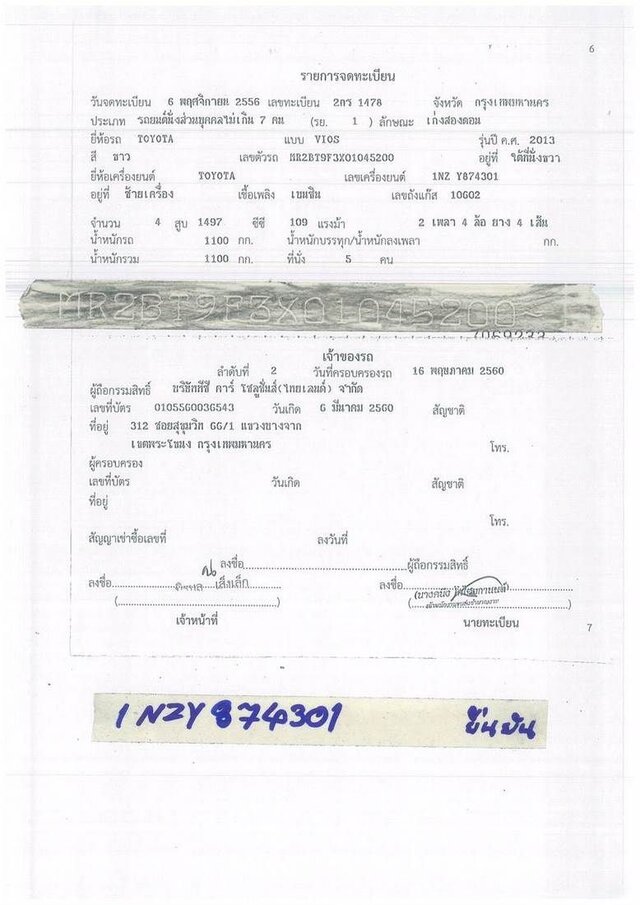 6
รายการจดทะเบียน
วันจดทะเบียน 6 พฤศจิกายน 2556 เลขทะเบียน 2กร 1478 จังหวัด กรุงเทพมหานคร
ประเภท รถยนต์นั่งส่วนบุคคลไม่เกิน 7 คน (รย. 1 ) ลักษณะ เก๋งสองตอน
ยี่ห้อรถ TOYOTA แบบ VIOS รุ่นปี ค.ศ. 2013
สี ขาว เลขตัวรถ MR2BT9F3X01045200 อยู่ที่ ใต้ที่นั่งขวา
ยี่ห้อเครื่องยนต์ TOYOTA เลขเครื่องยนต์ 1NZ Y874301
อยู่ที่ ซ้ายเครื่อง เชื้อเพลิง เบนซิน เลขถังแก๊ส 10602
จำนวน 4 สูบ 1497 ซีซี 109 แรงม้า 2 เพลา 4 ล้อ ยาง 4 เส้น
น้ำหนักรถ 1100 กก. น้ำหนักบรรทุก/น้ำหนักลงเพลา กก.
น้ำหนักรวม 1100 กก. ที่นั่ง 5 คน
MR2BT9F3X01045200~
เจ้าของรถ
ลำดับที่ 2 วันที่ครอบครองรถ 16 พฤษภาคม 2560
ผู้ถือกรรมสิทธิ์ บริษัททีซี คาร์ โซลูชั่นส์(ไทยแลนด์) จำกัด
เลขที่บัตร 0105560036543 วันเกิด 6 มีนาคม 2560 สัญชาติ
ที่อยู่ 312 ซอยสุขุมวิท 66/1 แขวงบางจาก
เขตพระโขนง กรุงเทพมหานคร โทร.
ผู้ครอบครอง
เลขที่บัตร วันเกิด สัญชาติ
ที่อยู่
โทร.
สัญญาเช่าซื้อเลขที่ ลงวันที่
ลงชื่อ ผู้ถือกรรมสิทธิ์
ลงชื่อ เส็งเล็ก ลงชื่อ
เจ้าหน้าที่ นายทะเบียน
7
1NZY874301 ยืนยัน